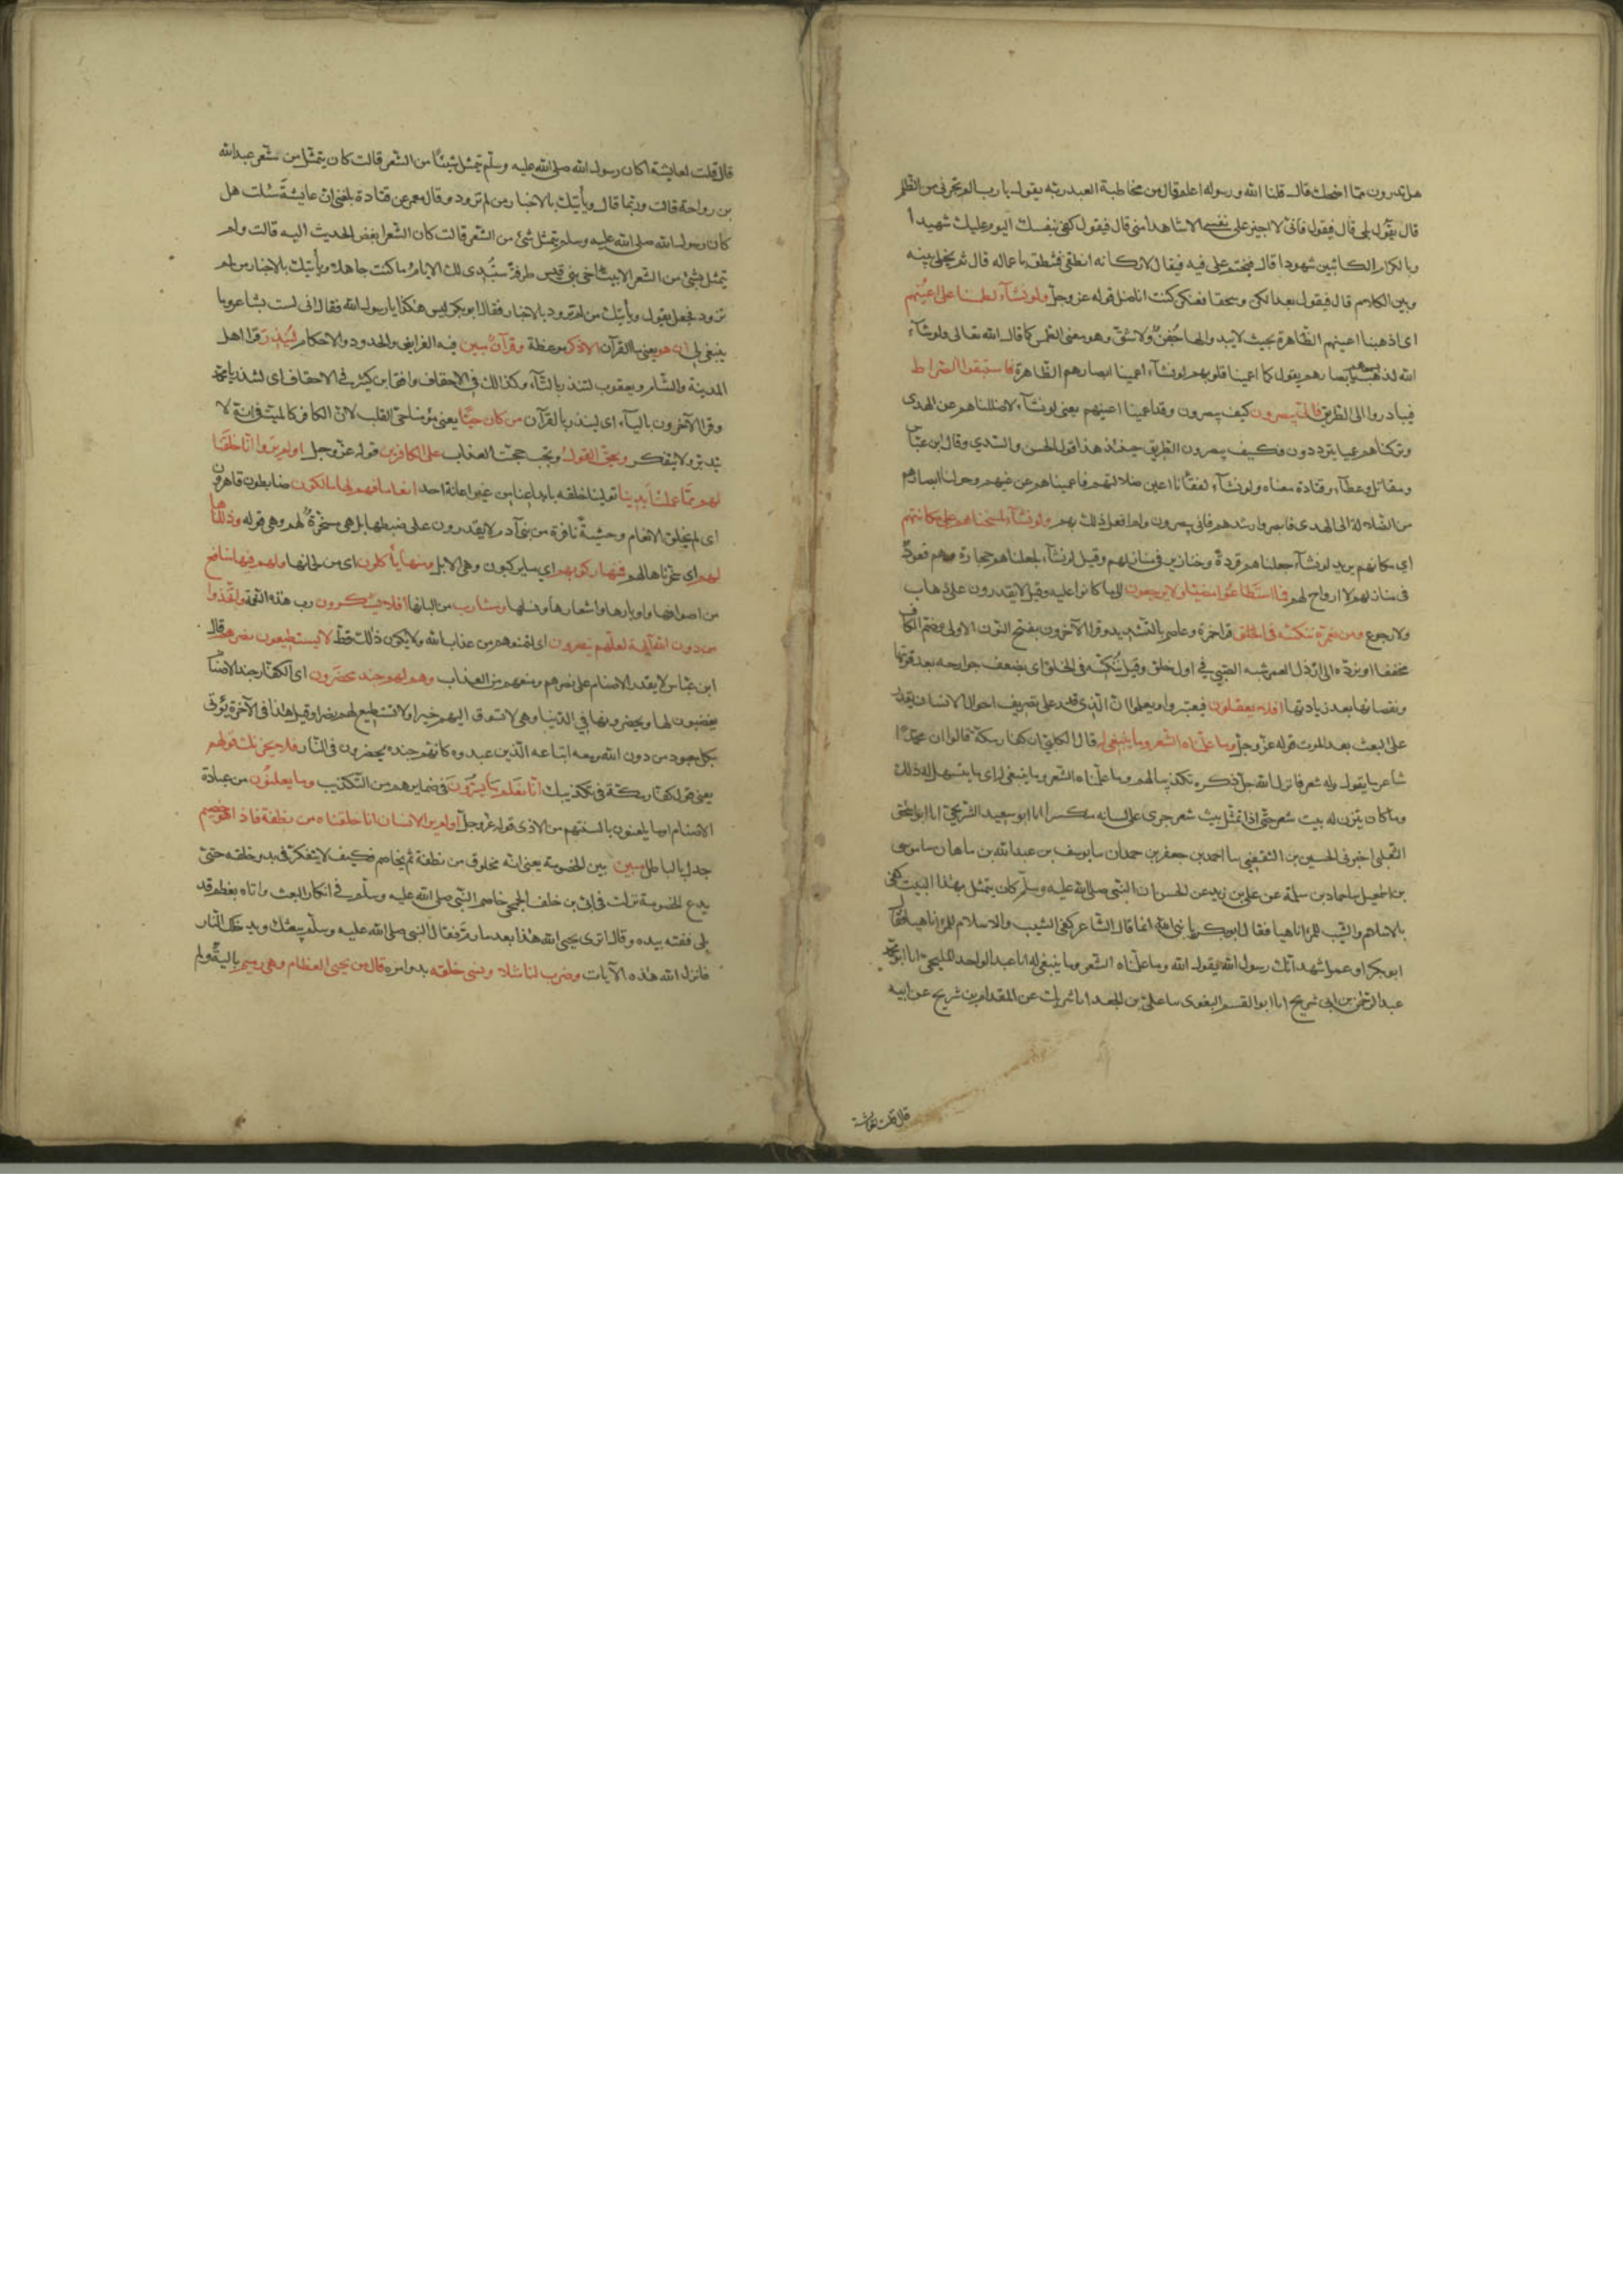 هل تدرون مما اضحك قال قلنا الله ورسوله اعلم قال من مخاطبة العبد ربه يقول يا رب الم تجرنى من الظلم
قال يقول بلى قال فيقول فانى لا اجيز على نفسى الا شاهدا منى قال فيقول كفى بنفسك اليوم عليك شهيدا
وبالكرام الكاتبين شهودا قال فيختم على فيه فيقال لاركانه انطقى فتنطق باعماله قال ثم يخلى بينه
وبين الكلام قال فيقول بعدا لكن وسحقا فعنكن كنت اناضل قوله عز وجل ولو نشآء لطمسنا على اعينهم
اى اذهبنا اعينهم الظاهرة بحيث لا يبدو لها جفن ولا شق وهو معنى الطمس كما قال الله تعالى ولو شآء
الله لذهب بسمعهم وابصارهم يقول كما اعمينا قلوبهم لو نشآء اعمينا ابصارهم الظاهرة فاستبقوا الصراط
فيبادروا الى الطريق فانى يبصرون كيف يبصرون وقد اعمينا اعينهم يعنى لو نشآء لاضللناهم عن الهدى
وتركناهم عميا يترددون فكيف يبصرون الطريق حينئذ هذا قول الحسن والسدي وقال ابن عباس
ومقاتل وعطآء وقتادة معناه ولو نشآء لفقأنا اعين ضلالتهم فاعميناهم عن غيهم وحولنا ابصارهم
من الضلالة الى الهدى فابصروا رشدهم فانى يبصرون ولم افعل ذلك بهم ولو نشآء لمسخناهم على مكانتهم
اي مكانهم يريد لو نشآء جعلناهم قردة وخنازير فى منازلهم وقيل لو نشآء لجعلناهم حجارة وهم قعود
فى منازلهم لا ارواح لهم فما استطاعوا مضيا ولا يرجعون الى ما كانوا عليه وقيل لا يقدرون على ذهاب
ولا رجوع ومن نعمره ننكسه فى الخلق قرا حمزة وعاصم بالتشديد وقرا الآخرون بفتح النون الاولى وضم الكاف
مخففا اى نرده الى ارذل العمر شبه الصبي في اول خلق وقيل ننكسه فى الخلق اى يضعف جوارحه بعد قوتها
ونقصانها بعد زيادتها افلا يعقلون فيعتبروا ويعلموا ان الذى قدر على تصريف احوال الانسان يقدر
على البعث بعد الموت قوله عز وجل وما علمناه الشعر وما ينبغى له قال الكلبى ان كفار مكة قالوا ان محمدا
شاعر ما يقوله شعر فانزل الله جل ذكره تكذيبا لهم وما علمناه الشعر وما ينبغى له اى ما يتسهل له ذلك
وما كان يتزن له بيت شعر حتى اذا تمثل بيت شعر جرى على لسانه منكسرا انا ابو سعيد الشريحى انا ابو اسحق
الثعلبى اخبرنى الحسين بن الثقفى سا احمد بن جعفر بن حمدان سا يوسف بن عبد الله بن ماهان سا موسى
بن اسمعيل سا حماد بن سلمة عن على بن زيد عن الحسن ان النبى صلى الله عليه وسلم كان يتمثل بهذا البيت كفى
بالاسلام والشيب للمرء ناهيا فقال ابو بكر يا نبى الله انما قال الشاعر كفى الشيب والاسلام للمرء ناهيا فقال
ابو بكر او عمر اشهد انك رسول الله يقول الله وما علمناه الشعر وما ينبغى له انا عبد الواحد المليحى انا ابو محمد
عبد الرحمن بن ابى شريح انا ابو القسم البغوى سا على بن الجعد انا شريك عن المقدام بن شريح عن ابيه
قال قلت لعايشة
قال قلت لعايشة اكان رسول الله صلى الله عليه وسلم يتمثل شيئا من الشعر قالت كان يتمثل من شعر عبد الله
بن رواحة قالت وربما قال ويأتيك بالاخبار من لم تزود وقال معمر عن قتادة بلغنى ان عايشة سئلت هل
كان رسول الله صلى الله عليه وسلم يتمثل بشئ من الشعر قالت كان الشعر ابغض الحديث اليه قالت ولم
يتمثل بشئ من الشعر الا ببيت اخى بنى قيس طرفة ستبدى لك الايام ما كنت جاهلا ويأتيك بالاخبار من لم
تزود فجعل يقول ويأتيك من لم تزود بالاخبار فقال ابو بكر ليس هكذا يا رسول الله فقال انى لست بشاعر وما
ينبغى لى ان هو يعنى ما القرآن الا ذكر موعظة وقرآن مبين فيه الفرايض والحدود والاحكام لينذر قرا اهل
المدينة والشام ويعقوب لتنذر بالتآء وكذلك فى الاحقاف وافق ابن كثير فى الاحقاف اى لتنذر يا محمد
وقرا الآخرون باليآء اى لينذر بالقرآن من كان حيا يعنى مؤمنا حى القلب لان الكافر كالميت فى انه لا
يتدبر ولا يتفكر ويحق القول ويجب حجت العذاب على الكافرين قوله عز وجل اولم يروا انا خلقنا
لهم مما عملت ايدينا تولينا خلقه بابداعنا من غير اعانة احد انعاما فهم لها مالكون ضابطون قاهرون
اى لم يخلق الانعام وحشية نافرة من بنى آدم لا يقدرون على ضبطها بل هى مسخرة لهم وهى قوله وذللناها
لهم اى سخرناها لهم فمنها ركوبهم اي ما يركبون وهى الابل ومنها يأكلون اى من لحمانها ولهم فيها منافع
من اصوافها واوبارها واشعارها ونسلها ومشارب من البانها افلا يشكرون رب هذه النعم واتخذوا
من دون الله آلهة لعلهم ينصرون اى لتمنعهم من عذاب الله ولا يكون ذلك قط لا يستطيعون نصرهم قال
ابن عباس لا يقدر الاصنام على نصرهم ومنعهم من العذاب وهم لهم جند محضرون اى الكفار جند الاصنام
يغضبون لها ويحضرونها في الدنيا وهى لا تسوق اليهم خيرا ولا تستطيع لهم نصرا وقيل هذا فى الآخرة يؤتى
بكل معبود من دون الله ومعه اتباعه الذين عبدوه كانهم جنده يحضرون فى النار فلا يحزنك قولهم
يعنى قول كفار مكة فى تكذيبك انا نعلم ما يسرون فى ضمايرهم من التكذيب وما يعلنون من عبادة
الاصنام او ما يلعنون بالسنتهم من الاذى قوله عز وجل اولم ير الانسان انا خلقناه من نطفة فاذا هو خصيم
جدل بالباطل مبين بين الخصومة يعنى انه مخلوق من نطفة ثم يخاصم فكيف لا يتفكر فى بدو خلقه حتى
يدع الخصومة نزلت فى ابى بن خلف الجمحى خاصم النبى صلى الله عليه وسلم في انكار البعث واتاه بعظم قد
بلى ففته بيده وقال اترى يحيى الله هذا بعد ما رم فقال النبى صلى الله عليه وسلم يبعثك ويدخلك النار
فانزل الله هذه الآيات وضرب لنا مثلا ونسى خلقه بدو امره قال من يحيى العظام وهى رميم بالية ولم